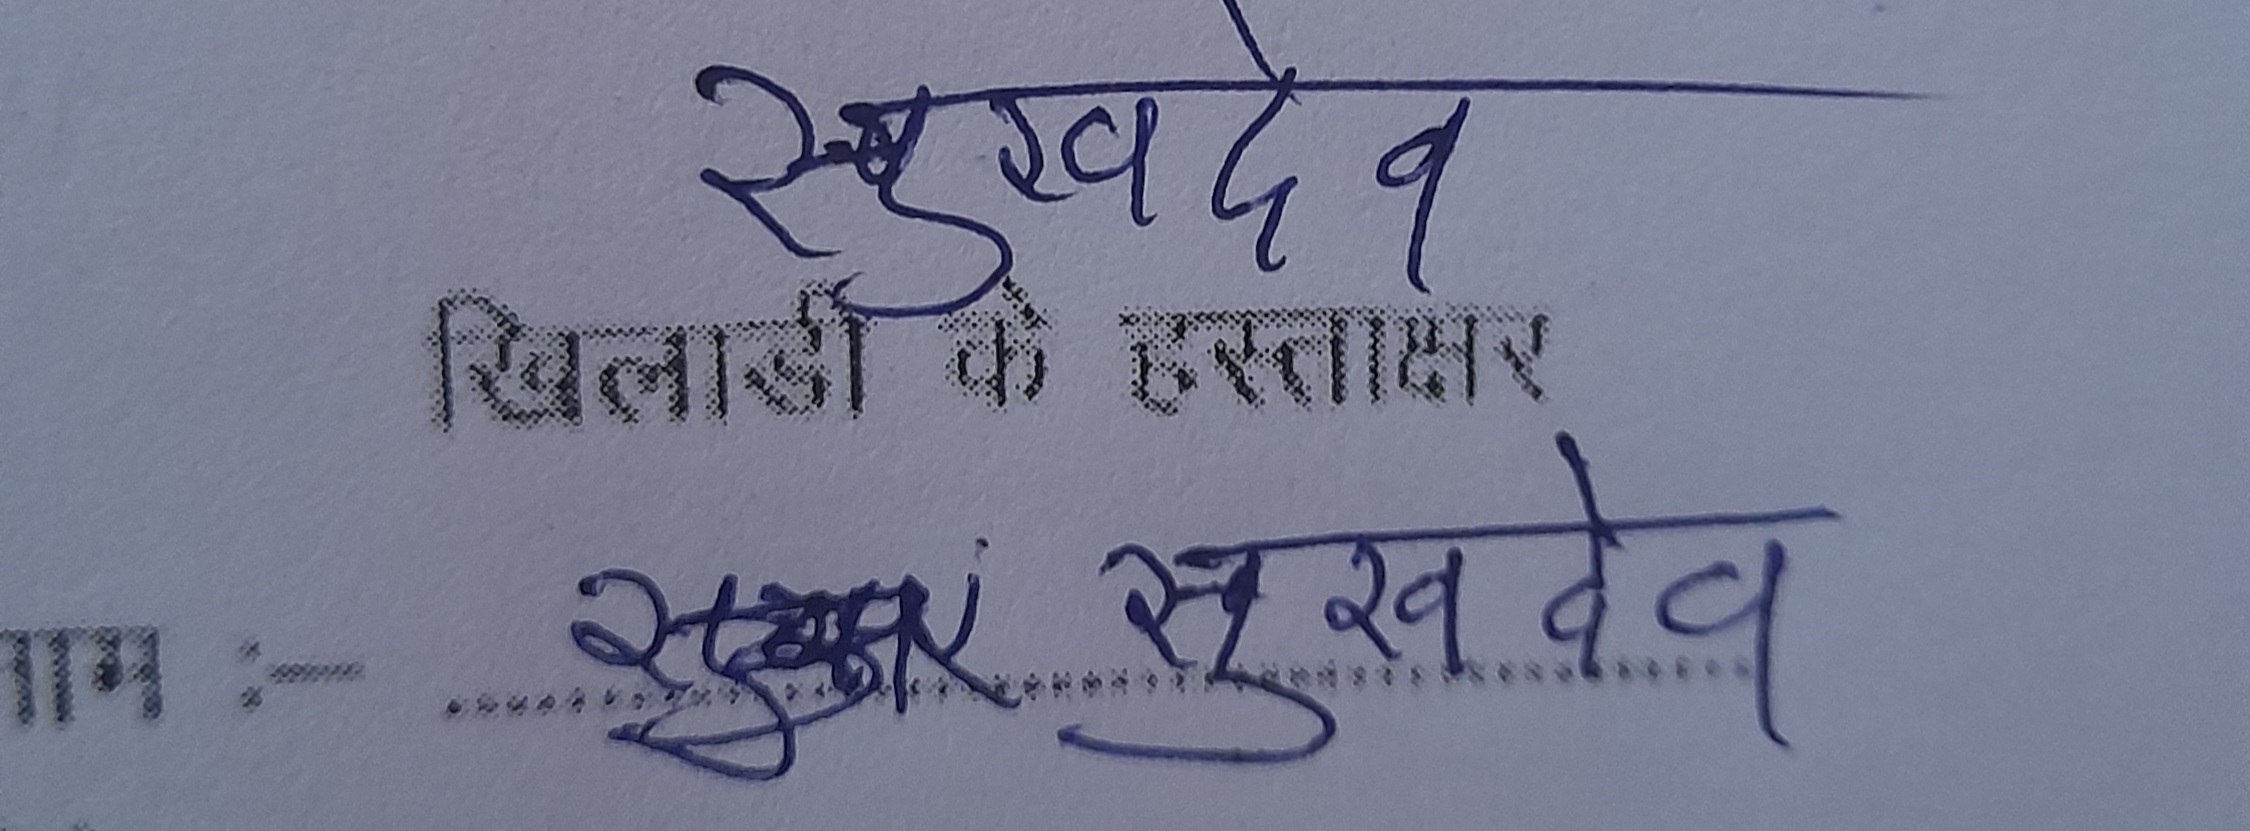 सुखदेव
खिलाडी के हस्ताक्षर
नाम :- सुखदेव